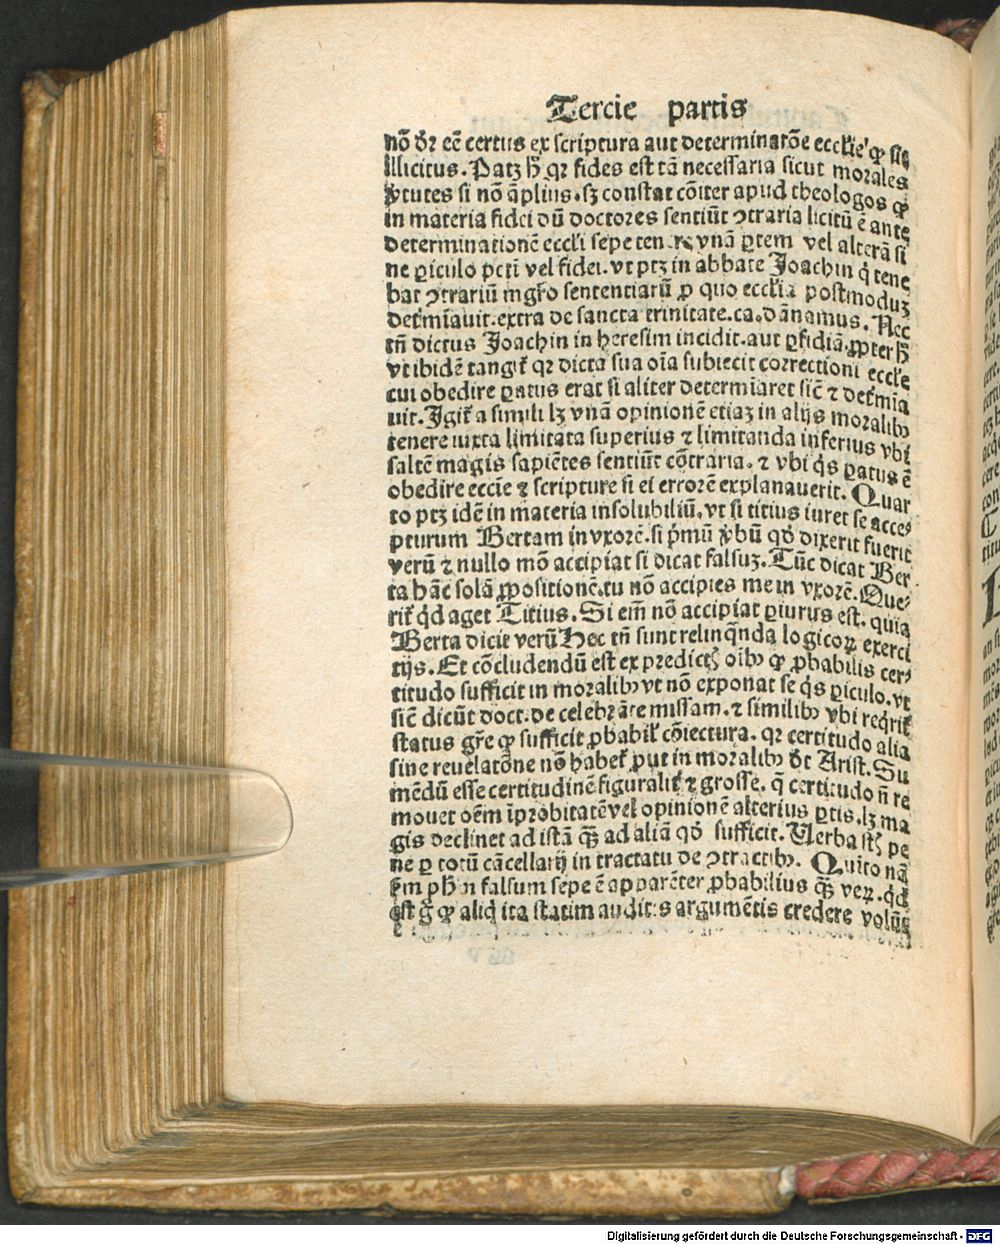 Tercie partis
nō dr̄ eē certus ex scriptura aut determinatōe eccl'ie q̄ sit
illicitus. Patz h̄ qr fides est tā necessaria sicut morales
v̄tutes si nō āplius. sz constat cōiter apud theologos q̄
in materia fidei dū doctores sentiūt ꝯtraria licitū ē ante
determinationē eccl'i sepe vnā ꝑtem vel alterā si
ne ꝑiculo pctī vel fidei. vt ptz in abbate Joachin q̄ tene
bat ꝯtrariū mgr̄o sententiarū ꝓ quo eccl'ia postmoduz
det'miauit. extra de sancta trinitate. ca. dānamus. Nec
tn̄ dictus Joachin in heresim incidit. aut ꝑfidiā. ꝓpter h̄
vt ibidē tangit' qr dicta sua oīa subiecit correctioni eccl'e
cui obedire ꝑatus erat si aliter determiaret sic̄ ⁊ det'mia
uit. Jgit' a simili lz vnā opinionē etiaz in alijs moralibꝫ
tenere iuxta limitata superius ⁊ limitanda inferius vbi
saltē magis sapiētes sentiūt cōtraria. ⁊ vbi q̄s ꝑatus ē
obedire eccie ⁊ scripture si ei errorē explanauerit. Quar
to ptz idē in materia insolubiliū. vt si titius iuret se acce⸗
pturum Bertam in vxorē. si p̄mū v̄bū qd̄ dixerit fuerit
verū ⁊ nullo mō accipiat si dicat falsuz. Tūc dicat Ber
ta hāc solā ꝓpositionē. tu nō accipies me in vxorē. Que⸗
rit' qd̄ aget Titius. Si em̄ nō accipiat ꝑiurus est. quia
Berta dicit verū Hec tn̄ sunt relinq̄nda logicoꝝ exerci
tijs. Et cōcludendū est ex predictꝭ oībꝫ q̄ ꝓbabilis cer⸗
titudo sufficit in moralibꝫ vt nō exponat se q̄s ꝑiculo. vt
sic̄ dicūt doct. de celebrāte missam. ⁊ similibꝫ vbi req̄rit'
status gr̄e q̄ sufficit ꝓbabil' cōiectura. qr certitudo alia
sine reuelatōne nō habet' ꝓut in moralibꝫ dc̄ Arist. Su
mēdū esse certitudinē figuralit' ⁊ grosse. q̄ certitudo n̄ re
mouet oēm īprobitatē vel opinionē alterius ꝑtis. lz ma
gis declinet ad istā q̄ꝫ ad aliā qd̄ sufficit. Verba stꝭ pe
ne ꝑ totū cācellarij in tractatu de ꝯtractibꝫ. Quīto nā
ẜm ph̄n falsum sepe ē apparēter ꝓbabilius q̄ꝫ veꝝ. qd̄
est ḡ q̄ aliq̄ ita statim auditis argumētis credere volūt
Digitalisierung gefördert durch die Deutsche Forschungsgemeinschaft - DFG